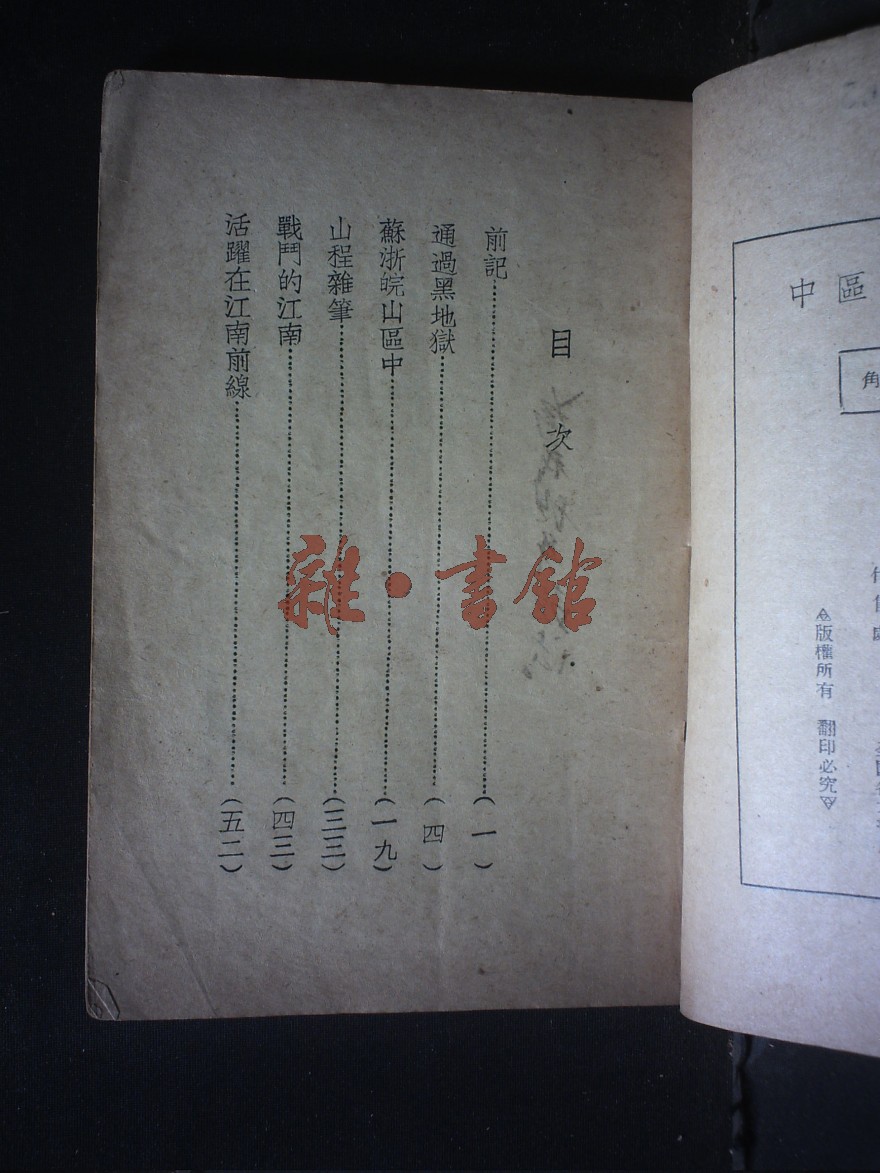 區中
角
版權所有 翻印必究
目次
前記……(一)
通過黑地獄……(四)
蘇浙皖山區中……(一九)
山程雜筆……(三三)
戰鬥的江南……(四三)
活躍在江南前線……(五二)
雜·書館